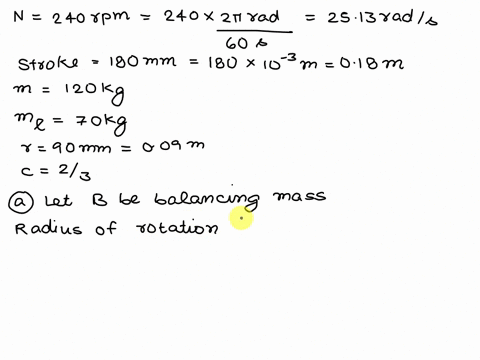 N = 240 rpm = 240 × 2π rad / 60 s = 25.13 rad/s
Stroke = 180 mm = 180 × 10⁻³ m = 0.18 m
m = 120 kg
mℓ = 70 kg
r = 90 mm = 0.09 m
c = 2/3
(a) Let B be balancing mass
Radius of rotation